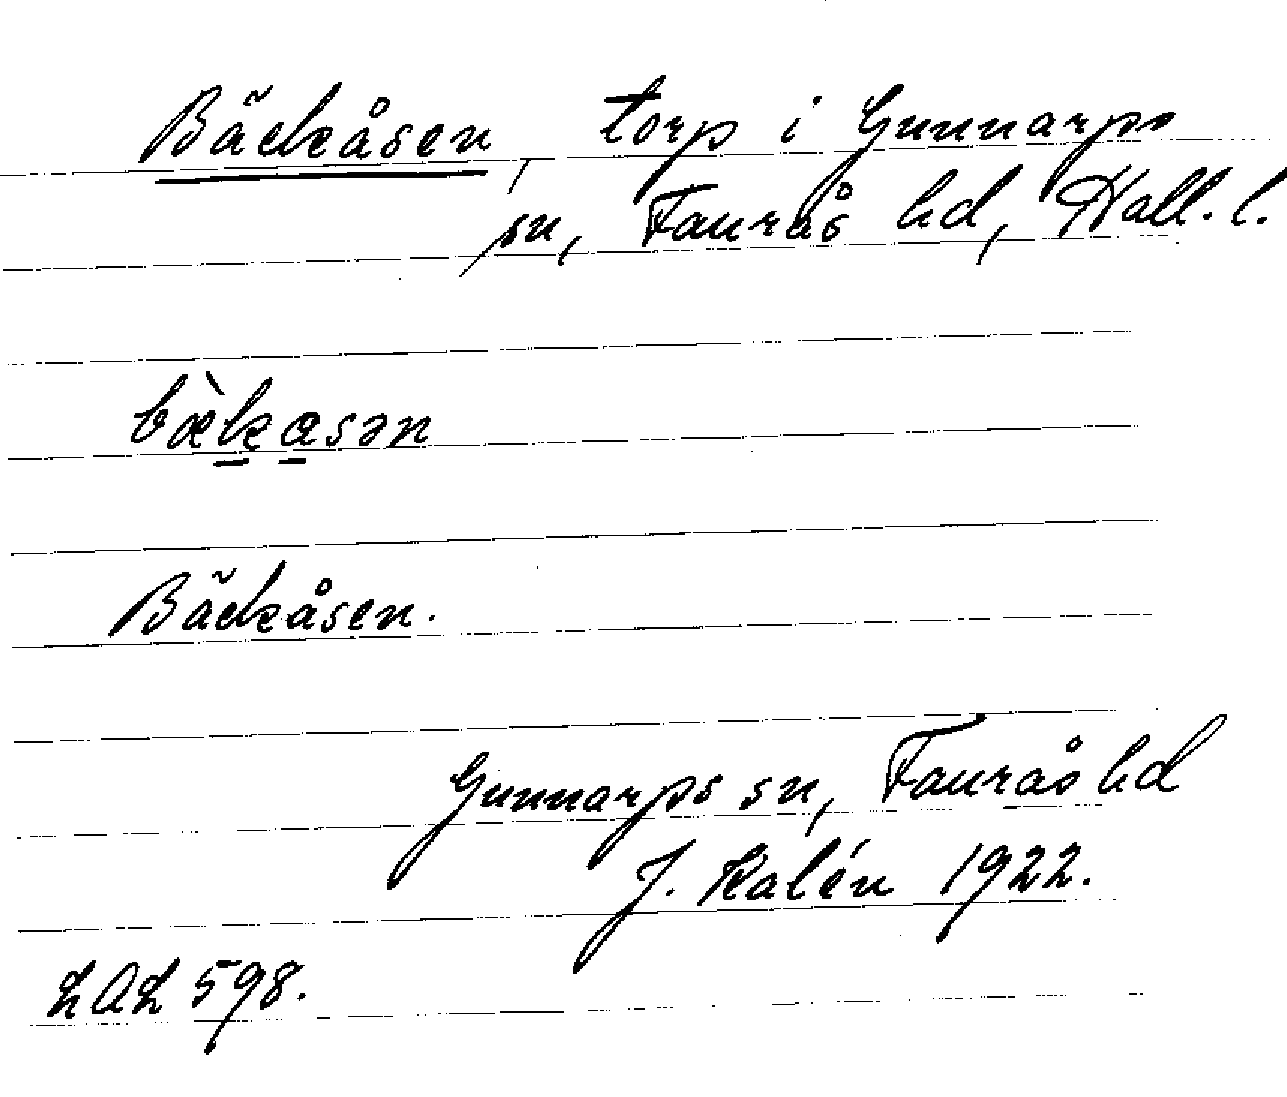 Bäckåsen, torp i Gunnarps
sn, Faurås hd, Hall. l.
bæ̀kasən
Bäckåsen.
Gunnarps sn, Faurås hd
J. Kalén 1922.
LAL 598.